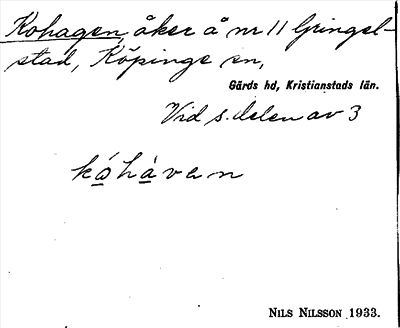 Kohagen, åker å nr 11 Gringel-
stad, Köpinge sn,
Gärds hd, Kristianstads län.
Vid s. delen av 3
kóhàven
NILS NILSSON 1933.